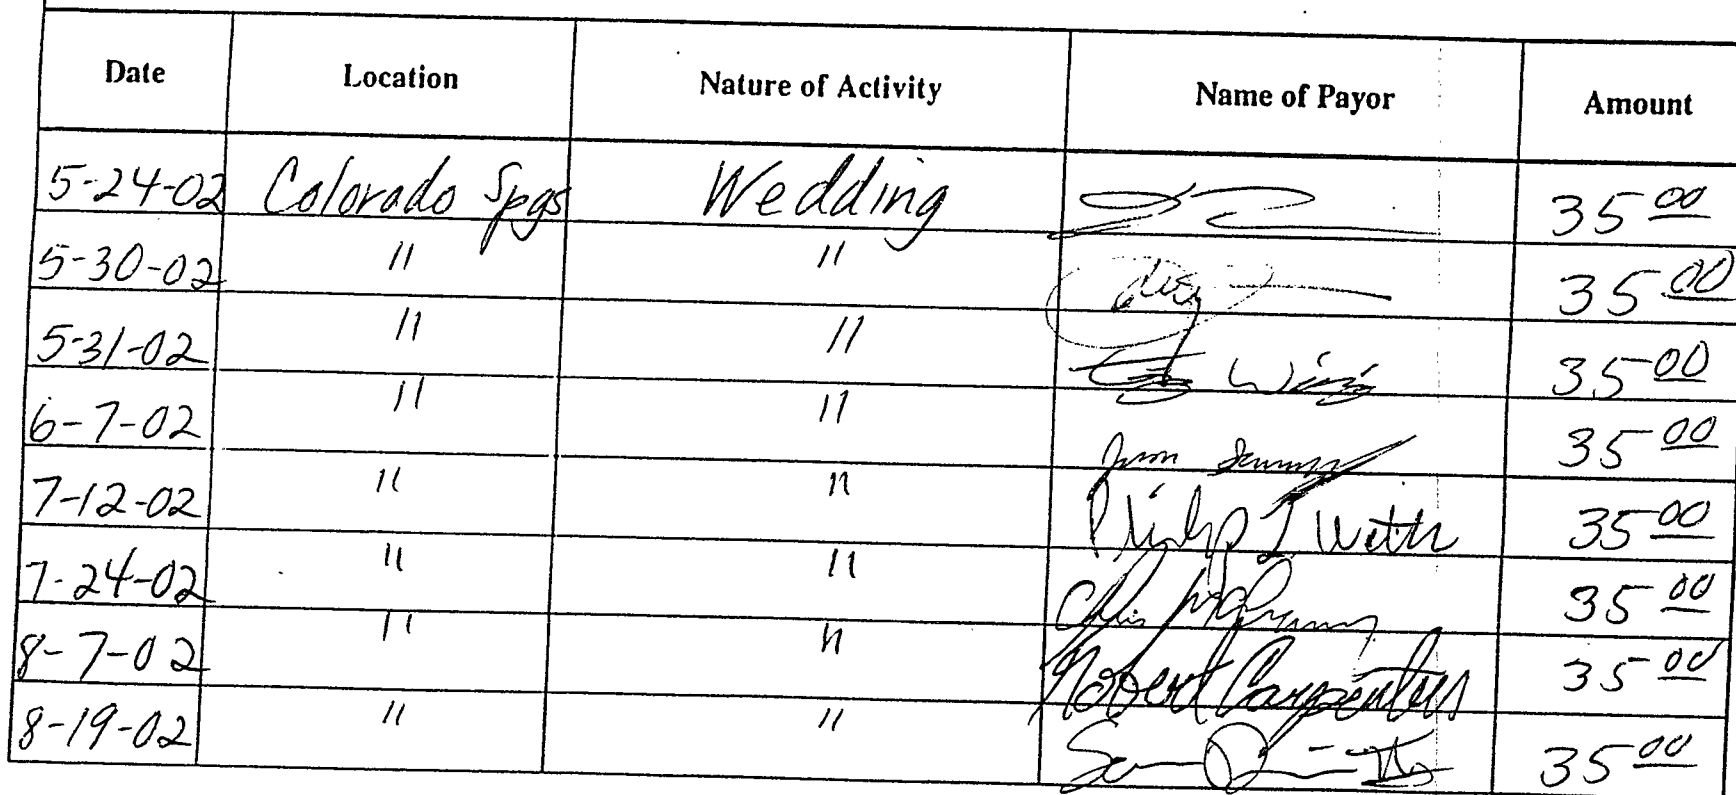 Date Location Nature of Activity Name of Payor Amount
5-24-02 Colorado Spgs Wedding 35 00
5-30-02 " " 35 00
5-31-02 " " 35 00
6-7-02 " " 35 00
7-12-02 " " 35 00
7-24-02 " " Chris 35 00
8-7-02 " " Robert 35 00
8-19-02 " " 35 00